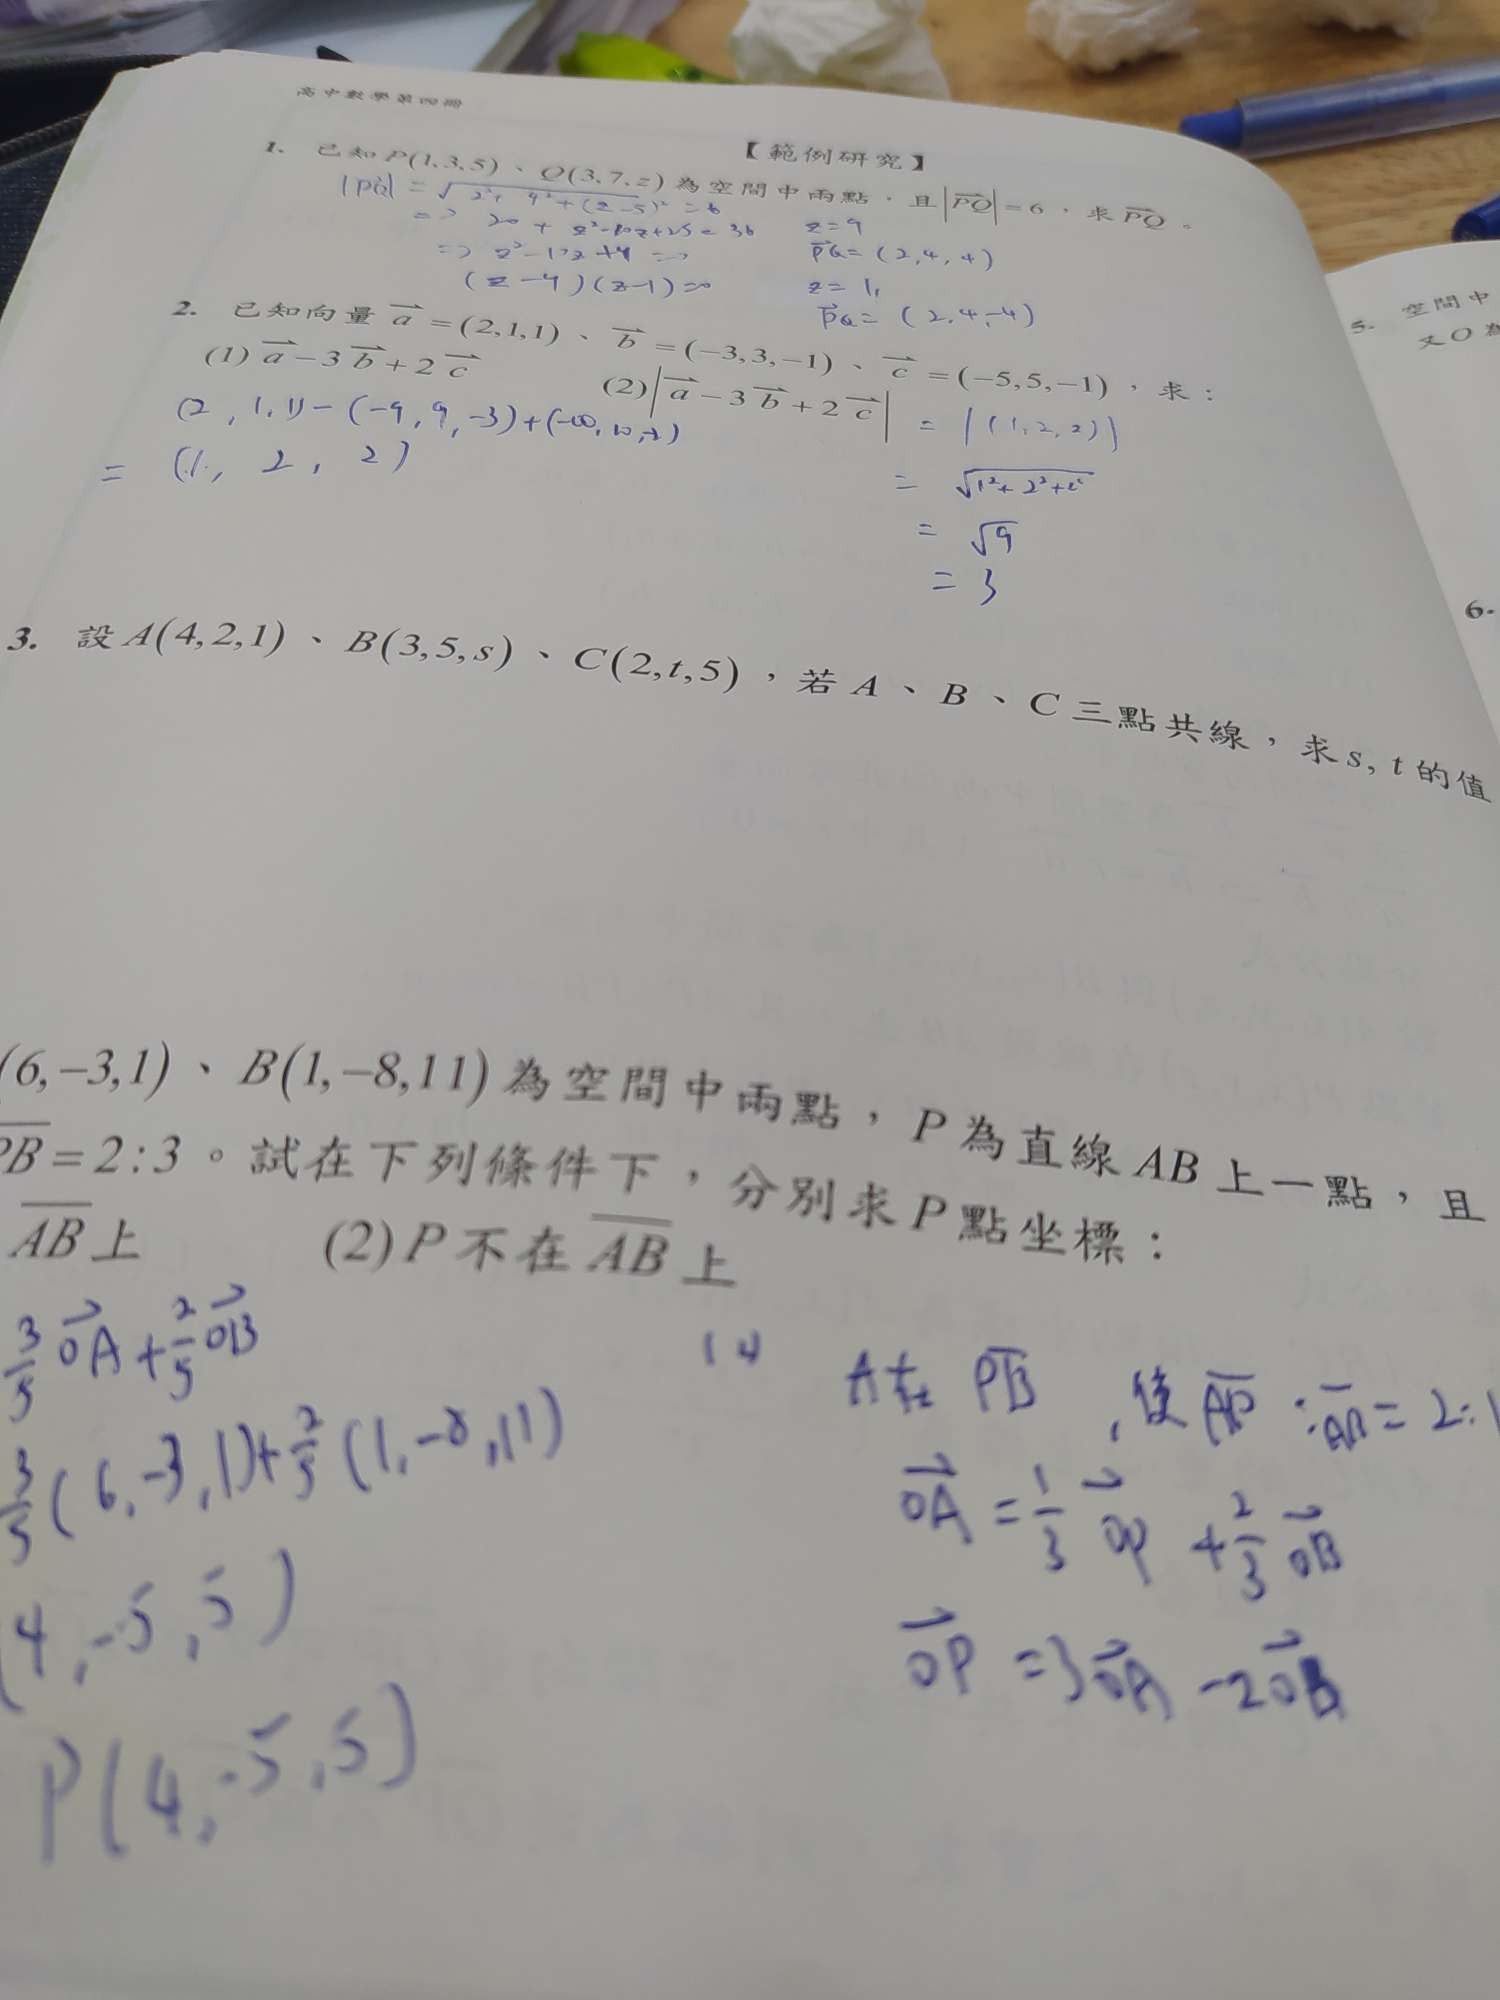 高中數學第四冊
【範例研究】
1. 已知P(1,3,5)、Q(3,7,z)為空間中兩點，且|PQ|=6，求PQ。
|PQ| = √2²+4²+(z-5)² = 6
=> 20 + z²-10z+25 = 36
=> z²-10z+9 =>
(z-9)(z-1)=0
z=9
PQ=(2,4,4)
z=1,
PQ=(2,4,-4)
2. 已知向量 a=(2,1,1)、b=(-3,3,-1)、c=(-5,5,-1)，求：
(1) a-3b+2c (2)|a-3b+2c| = |(1,2,2)|
(2,1,1)-(-9,9,-3)+(-10,10,-2)
= (1, 2, 2)
= √1²+2²+2²
= √9
= 3
3. 設A(4,2,1)、B(3,5,s)、C(2,t,5)，若A、B、C三點共線，求s, t的值
(6,-3,1)、B(1,-8,11)為空間中兩點，P為直線AB上一點，且
PB=2:3。試在下列條件下，分別求P點坐標：
AB上 (2)P不在AB上
3/5 OA + 2/5 OB
3/5 (6,-3,1) + 2/5 (1,-8,11)
(4,-5,5)
P(4,-5,5)
A在 PB ,使 AP : AB = 2:1
OA = 1/3 OP + 2/3 OB
OP = 3OA - 2OB
5. 空間中
又O為
6.